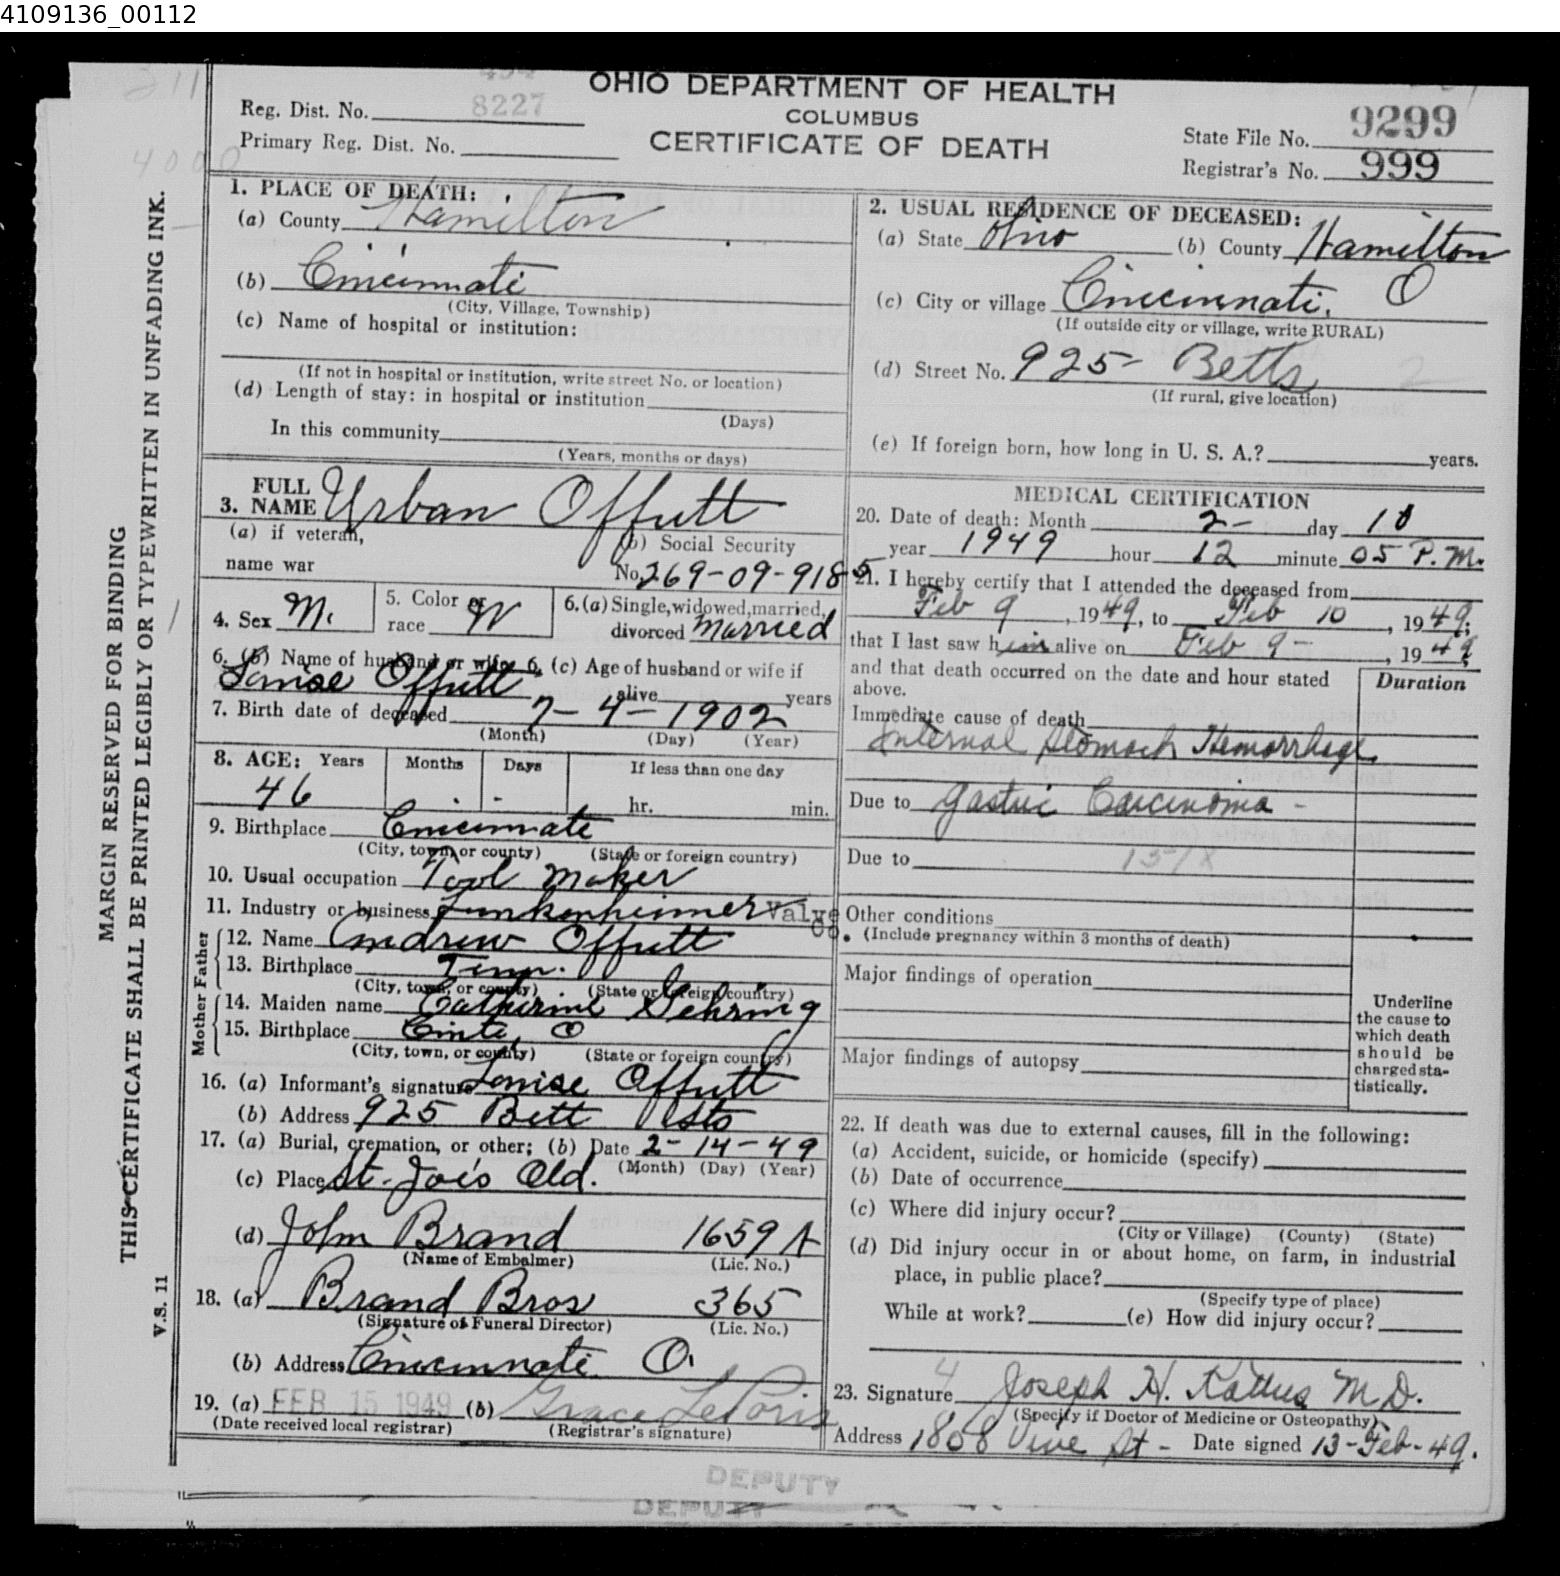 4109136_00112
OHIO DEPARTMENT OF HEALTH
COLUMBUS
CERTIFICATE OF DEATH
Reg. Dist. No. 8227
Primary Reg. Dist. No.
State File No. 9299
Registrar's No. 999
MARGIN RESERVED FOR BINDING
THIS CERTIFICATE SHALL BE PRINTED LEGIBLY OR TYPEWRITTEN IN UNFADING INK.
V.S. 11
1. PLACE OF DEATH:
(a) County Hamilton
(b) Cincinnati
(City, Village, Township)
(c) Name of hospital or institution:
(If not in hospital or institution, write street No. or location)
(d) Length of stay: in hospital or institution
(Days)
In this community
(Years, months or days)
2. USUAL RESIDENCE OF DECEASED:
(a) State Ohio (b) County Hamilton
(c) City or village Cincinnati, O
(If outside city or village, write RURAL)
(d) Street No. 925 - Betts
(If rural, give location)
(e) If foreign born, how long in U. S. A.? years.
3. FULL NAME Urban Offutt
(a) if veteran,
name war
(b) Social Security
No. 269-09-9185
4. Sex M. 5. Color or race W 6. (a) Single, widowed, married, divorced Married
6. (b) Name of husband or wife 6. (c) Age of husband or wife if
Louise Offutt alive years
7. Birth date of deceased 7-4-1902
(Month) (Day) (Year)
8. AGE: Years Months Days If less than one day
46 - - hr. min.
9. Birthplace Cincinnati
(City, town, or county) (State or foreign country)
10. Usual occupation Tool Maker
11. Industry or business Lunkenheimer Valve Co.
Father
12. Name Andrew Offutt
13. Birthplace Tenn.
(City, town, or county) (State or foreign country)
Mother
14. Maiden name Catherine Gehring
15. Birthplace Cinti, O
(City, town, or county) (State or foreign country)
16. (a) Informant's signature Louise Offutt
(b) Address 925 Bett Sts
17. (a) Burial, cremation, or other; (b) Date 2-14-49
(Month) (Day) (Year)
(c) Place St. Joe's Old.
(d) John Brand 1659 A
(Name of Embalmer) (Lic. No.)
18. (a) Brand Bros 365
(Signature of Funeral Director) (Lic. No.)
(b) Address Cincinnati O.
19. (a) FEB 15 1949 (b) Grace
(Date received local registrar) (Registrar's signature)
MEDICAL CERTIFICATION
20. Date of death: Month 2- day 10
year 1949 hour 12 minute 05 P.M.
21. I hereby certify that I attended the deceased from
Feb 9, 1949, to Feb 10, 1949;
that I last saw him alive on Feb 9-, 1949
and that death occurred on the date and hour stated above.
Duration
Immediate cause of death
Internal Stomach Hemorrhage
Due to Gastric Carcinoma -
Due to
Other conditions
(Include pregnancy within 3 months of death)
Major findings of operation
Major findings of autopsy
Underline the cause to which death should be charged statistically.
22. If death was due to external causes, fill in the following:
(a) Accident, suicide, or homicide (specify)
(b) Date of occurrence
(c) Where did injury occur?
(City or Village) (County) (State)
(d) Did injury occur in or about home, on farm, in industrial
place, in public place?
(Specify type of place)
While at work? (e) How did injury occur?
4
23. Signature Joseph H. Kattus M.D.
(Specify if Doctor of Medicine or Osteopathy)
Address 1808 Vine St - Date signed 13-Feb-49.
DEPUTY
DEPUTY